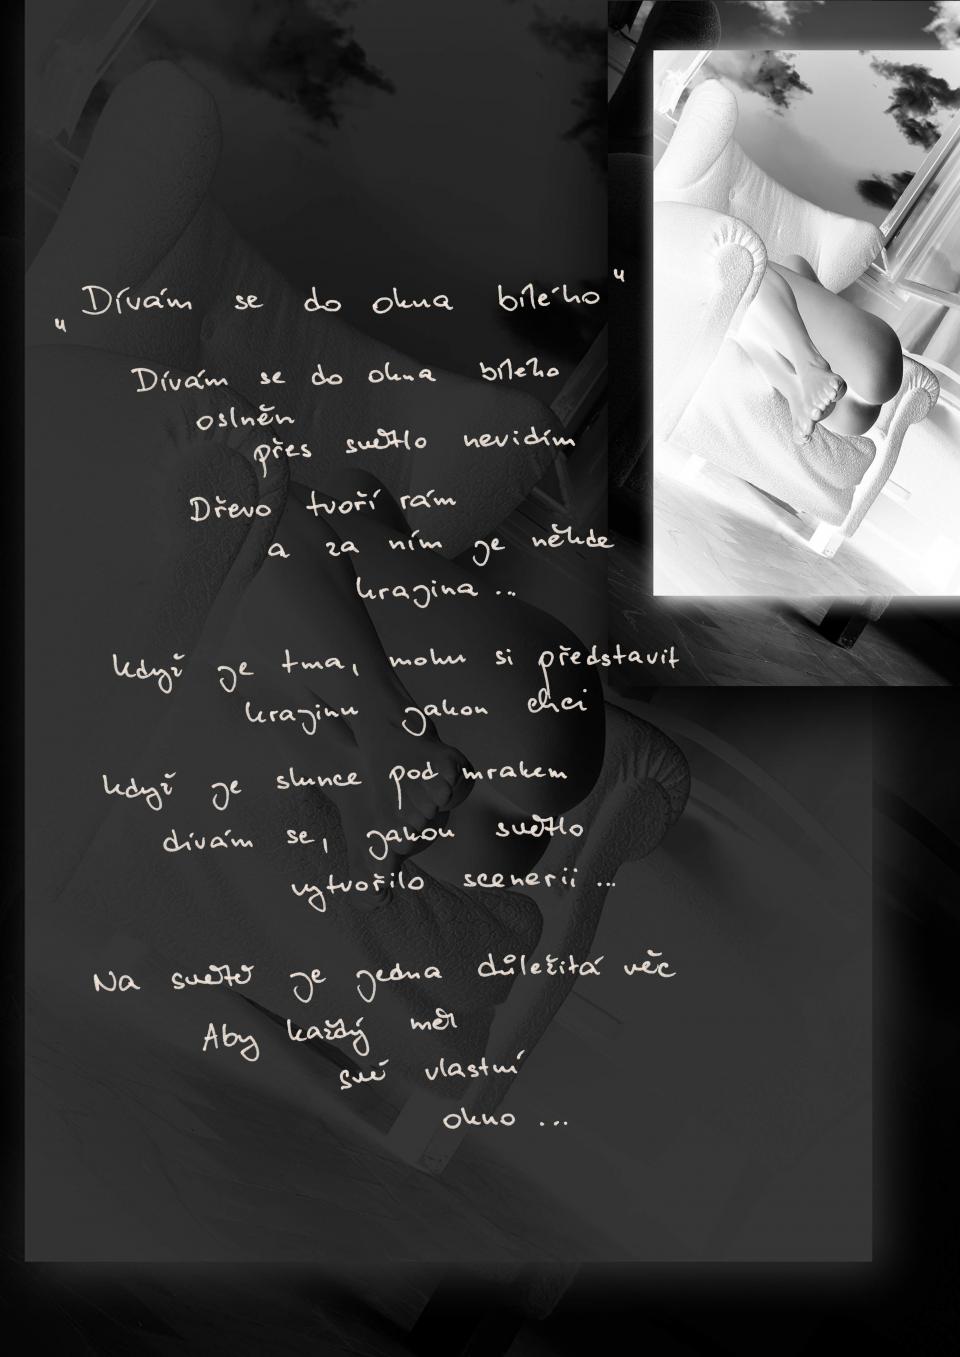 „Dívám se do okna bílého"
Dívám se do okna bílého
oslněn
přes světlo nevidím
Dřevo tvoří rám
a za ním je někde
krajina ...
Když je tma, mohu si představit
krajinu jakou chci
Když je slunce pod mrakem
dívám se, jakou světlo
vytvořilo scenerii ...
Na světě je jedna důležitá věc
Aby každý měl
své vlastní
okno ...